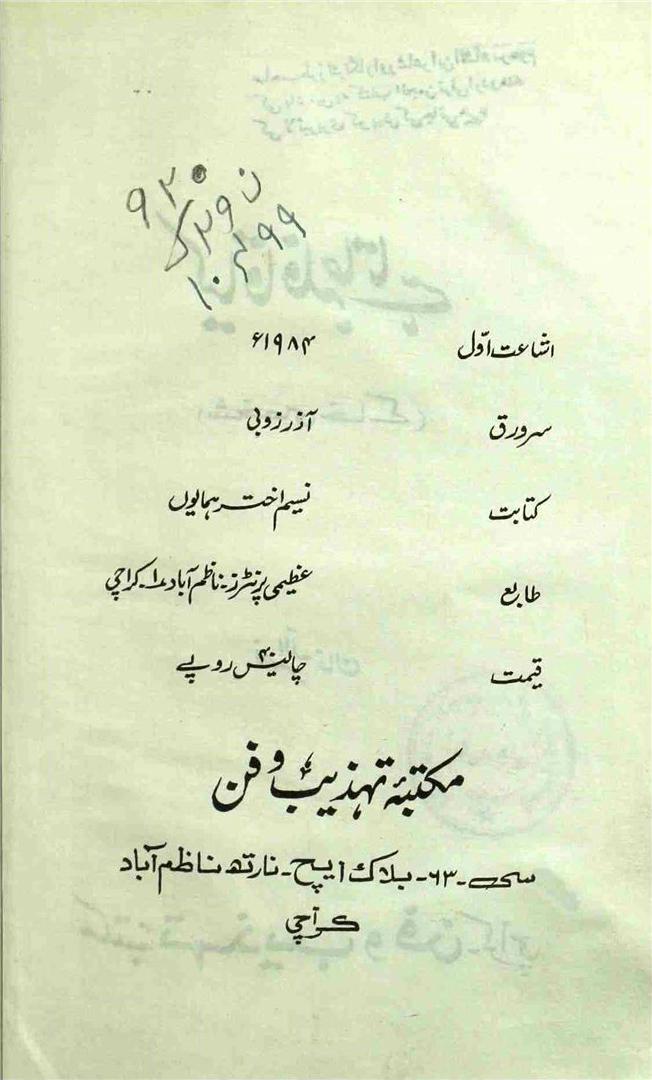 ۹۲۰
ن ۳۹ ک
۱۰۲۹۹
اشاعت اوّل ۱۹۸۴ء
سرورق آذر زوبی
کتابت نسیم اختر ہمایوں
طابع عظیمی پرنٹرز۔ناظم آباد ۱۔کراچی
قیمت چالیس ۴۰ روپے
مکتبۂ تہذیب و فن
سی۔۶۳۔بلاک ایچ۔نارتھ ناظم آباد
کراچی